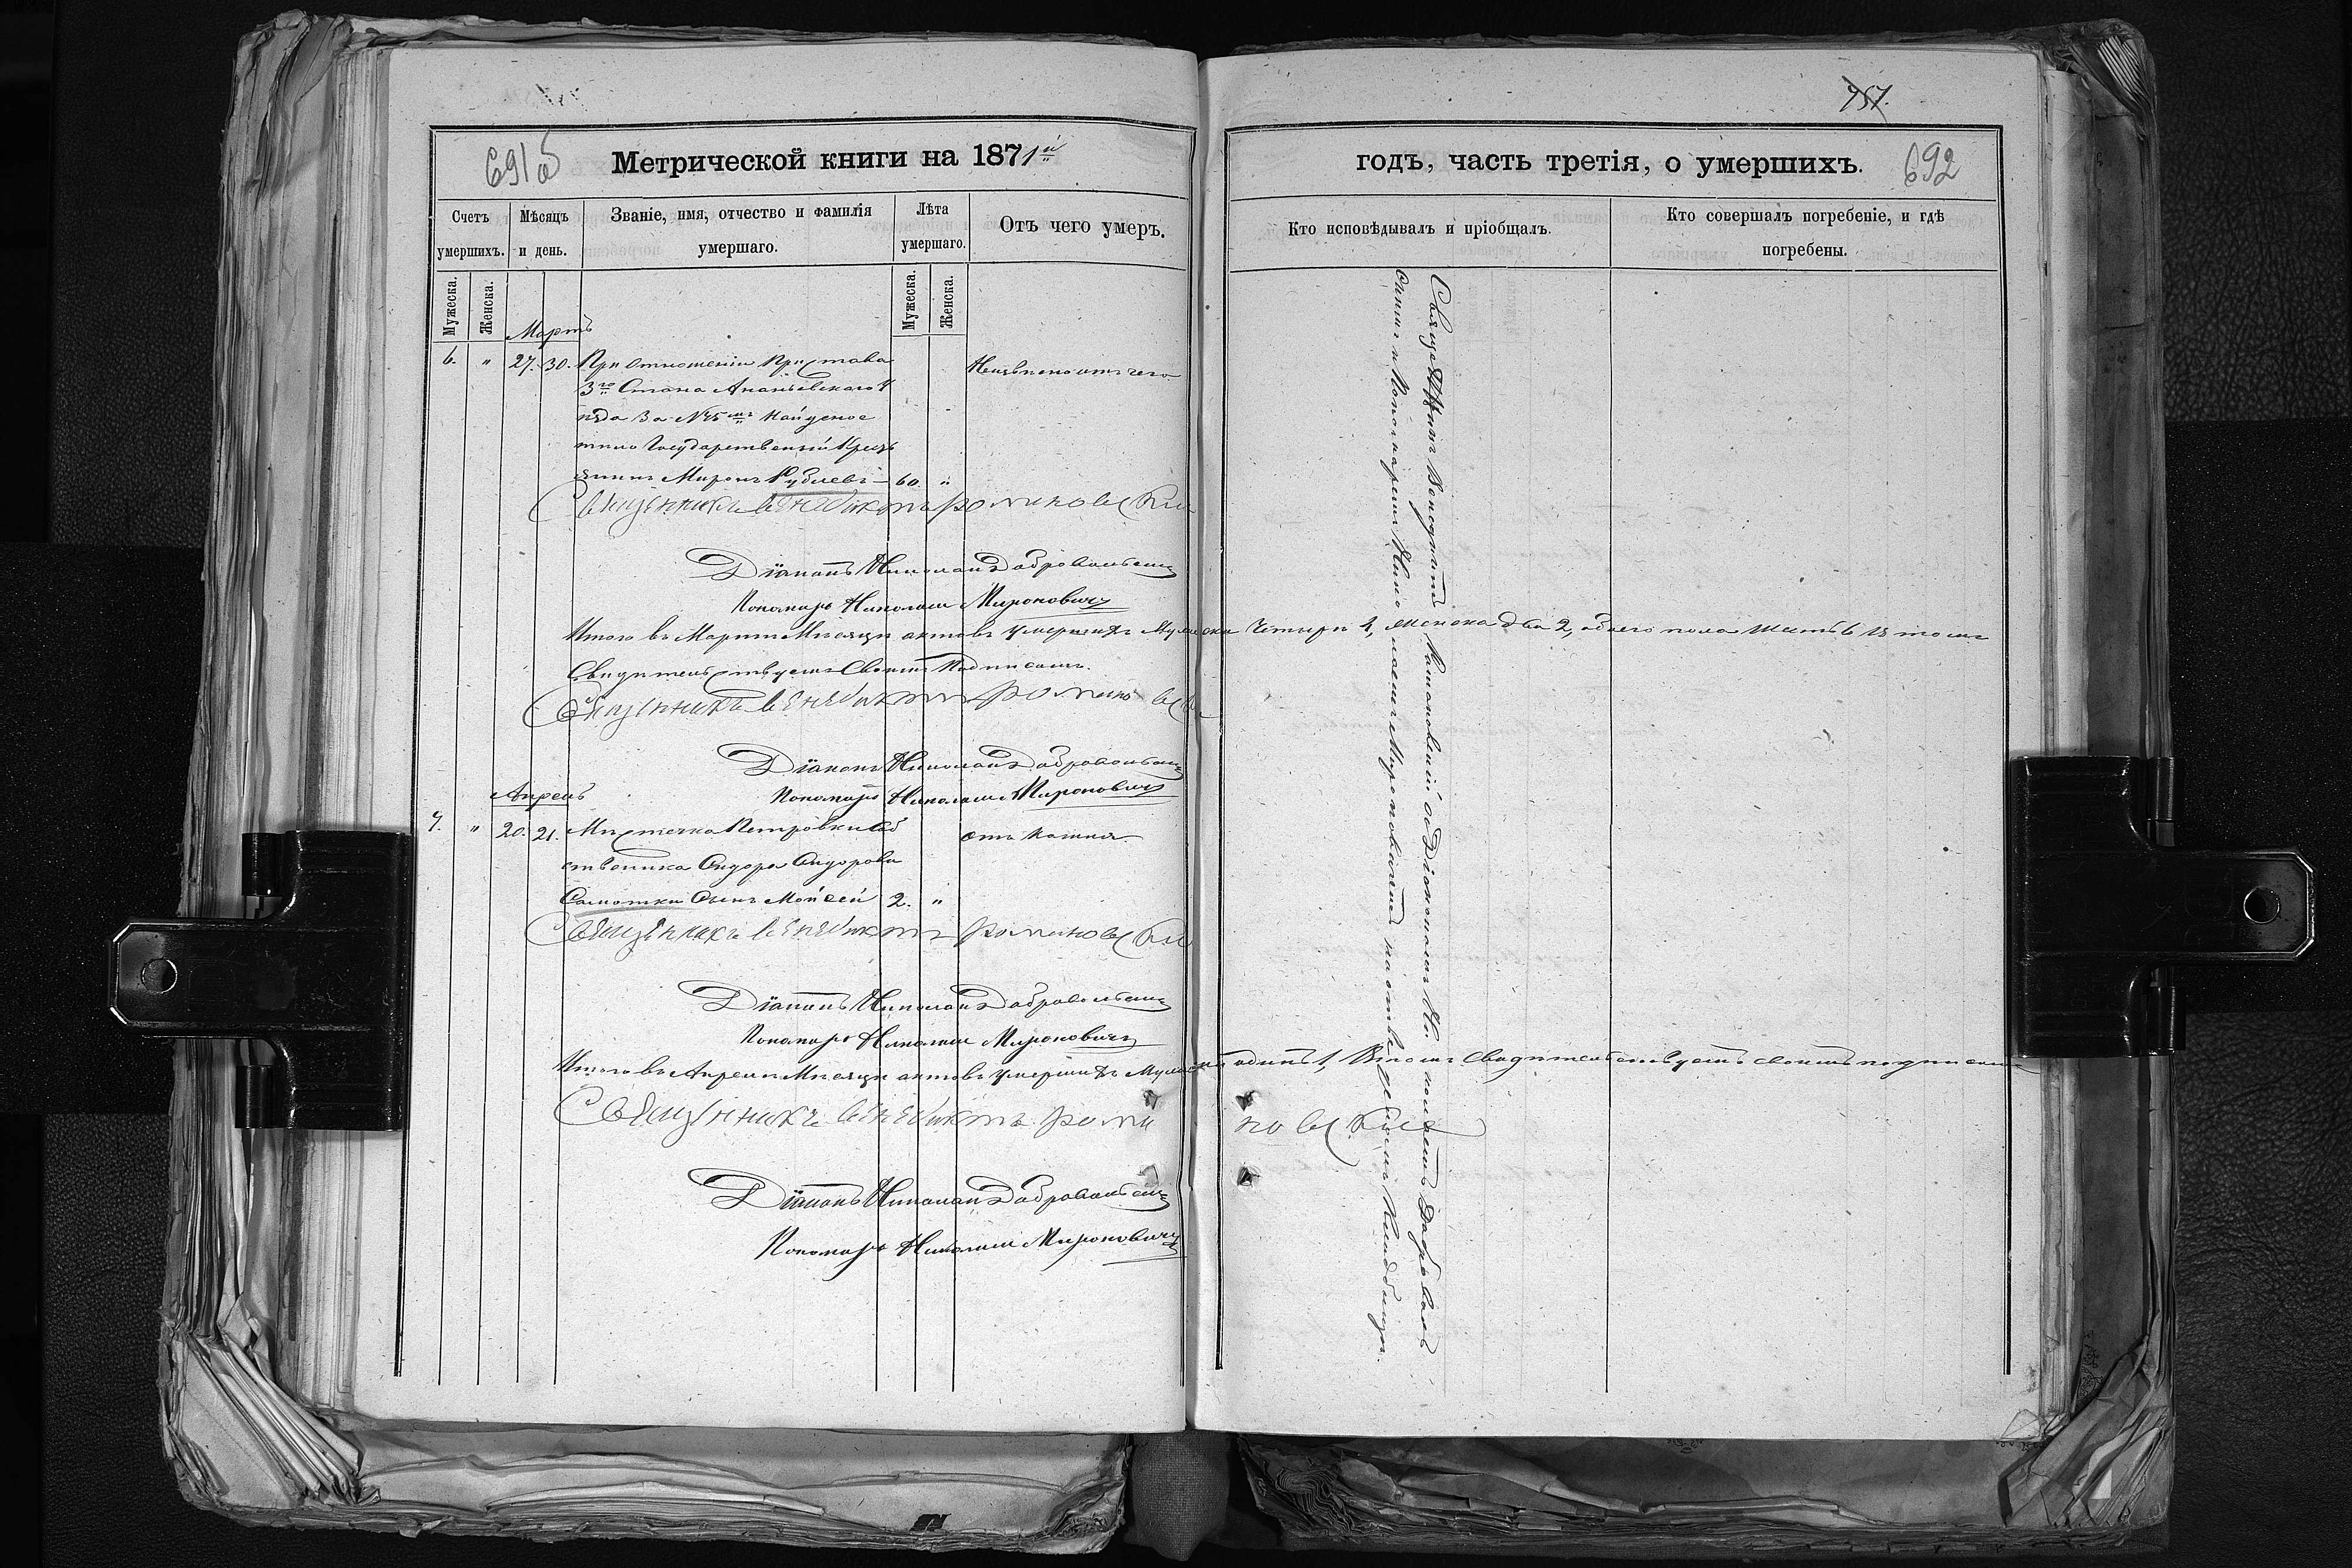 757.
691об
Метрической книги на 1871й
годъ, часть третія, о умершихъ.
692
Счетъ умершихъ.
Мѣсяцъ и день.
Званіе, имя, отчество и фамилія умершаго.
Лѣта умершаго.
Отъ чего умеръ.
Кто исповѣдывалъ и пріобщалъ.
Кто совершалъ погребеніе, и гдѣ погребены.
Мужеска.
Женска.
Мужеска.
Женска.
Мартъ
6. " 27. 30. При Отношеніи Пристава
3го Стана Ананьевскаго У
ѣзда За № найденое
тило Государственный Крест
янинъ Миронъ 60. "
Неизвѣсно отъ чего
Священникъ Венедиктъ Романовскій
Діаконъ Николай Добровольскій
Пономарь Николай Мироновичъ
Итого въ Мартѣ Мѣсяцѣ актовъ умершихъ Мужеска Четыри 4, женска два 2, обоего пола Шесть 6 въ томъ
Свидѣтельствуемъ Своимъ Подписомъ.
Священникъ Венедиктъ Романовскій
Діаконъ Николай Добровольскій
Пономарь Николай Мироновичъ
Апрель
7. " 20. 21. Мѣстечка Петровки Соб
ственика Сидора Сидорова
Самотки Сынъ Мойсей 2. "
отъ кашля.
Священникъ Венедиктъ Романовскій
Діаконъ Николай Добровольскій
Пономарь Николай Мироновичъ
Итого въ Апрелѣ Мѣсяцѣ актовъ умершихъ Мужеска одинъ 1, Втомъ Свидѣтельствуемъ своимъ подписомъ
Священникъ Венедиктъ Романовскій
Діаконъ Николай Добровольскій
Пономарь Николай Мироновичъ
Священникъ Венедиктъ Романовскій съ Діакономъ Николаемъ Доброволь
скимъ и Пономаремъ Николаемъ Мироновичемъ на Кладбищѣ.